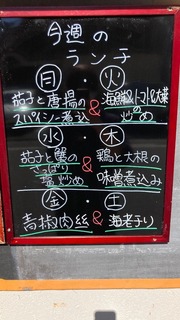 今週の
ランチ
月・火
茄子と唐揚の
スパイシー煮込
&
海鮮トマト&大葉
の炒め
水・木
茄子と蟹の
さっぱり
醤炒め
&
鶏と大根の
味噌煮込み
金・土
青椒肉絲
&
海老チリ